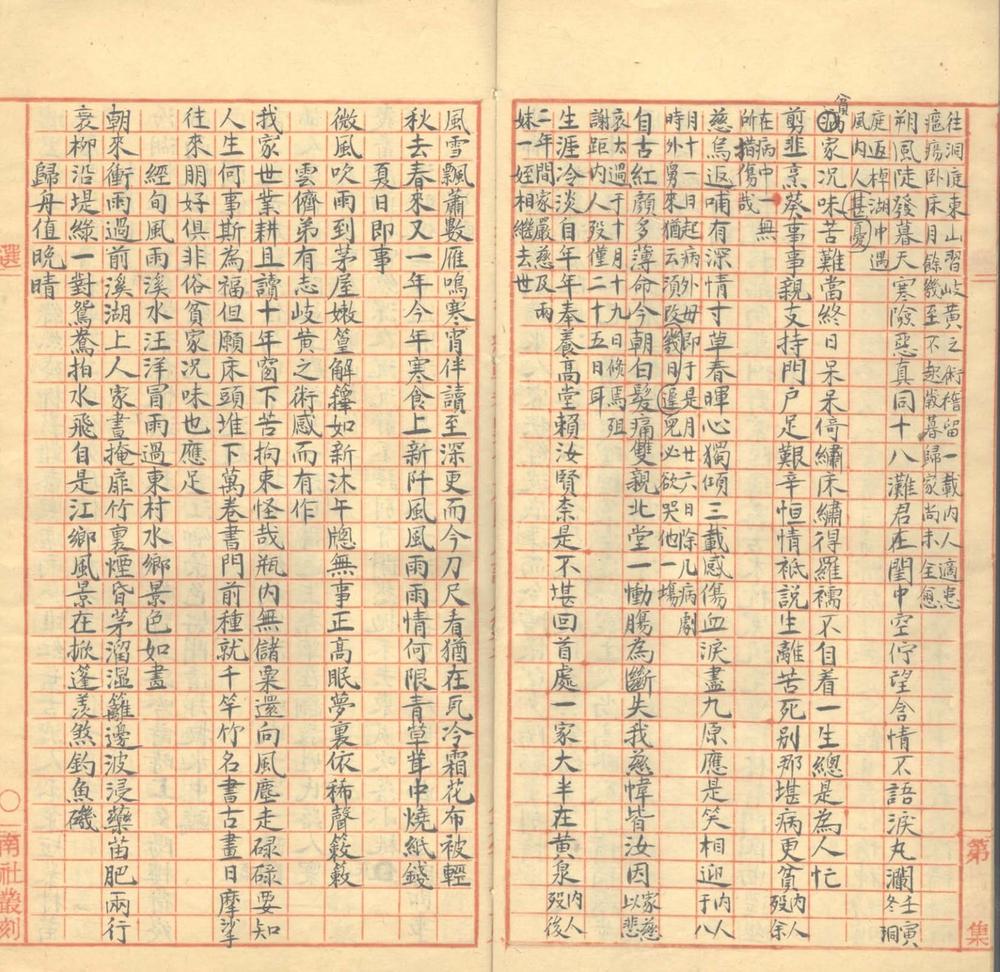 往洞庭東山習岐黃之術稽留一載內人適患
瘧瘍卧床月餘幾至不起歲暮歸家尚未全愈
朔風陡發暮天寒險惡真同十八灘君在閨中空佇望含情不語淚丸瀾壬寅冬洞
庭返棹湖中遇
風內人甚憂
貧家況味苦難當終日呆呆倚繡床繡得羅襦不自看一生總是為人忙
剪韭烹葵事事親支持門戶足艱辛恒情祇説生離苦死別那堪病更貧內人殁余
在病中一無
所措傷哉
慈烏返哺有深情寸草春暉心獨傾三載感傷血淚盡九原應是笑相迎內人于八
月十一日起病外母即于是月廿六日除几病劇
時外舅來猶云須改幾日逗兒必欲哭他一塲
自古紅顏多薄命今朝白髮痛雙親北堂一慟腸為斷失我慈幃皆汝因家慈以悲
哀太過于十月十九日倐焉殂
謝距內人殁僅二十五日耳
生涯冷淡自年年奉養高堂賴汝賢柰是不堪回首處一家大半在黃泉內人殁後
二年間家嚴慈及兩
妹一姪相繼去世
第 集
風雪飄蕭數雁鳴寒宵伴讀至深更而今刀尺看猶在瓦冷霜花布被輕
秋去春來又一年今年寒食上新阡風風雨雨情何限青草茸中燒紙錢
夏日即事
微風吹雨到茅屋嫩篁解籜如新沐午牕無事正高眠夢裏依稀聲簌簌
雲儕弟有志岐黃之術感而有作
我家世業耕且讀十年窗下苦拘束怪哉瓶內無儲粟還向風塵走碌碌要知
人生何事斯為福但願床頭堆下萬卷書門前種就千竿竹名書古畫日摩挲
往來朋好俱非俗貧家况味也應足
經旬風雨溪水汪洋冒雨過東村水鄉景色如畫
朝來衝雨過前溪湖上人家晝掩扉竹裏煙昏茅溜濕籬邊波浸藥苗肥兩行
衰柳沿堤綠一對鴛鴦拍水飛自是江鄉風景在掀篷羨煞釣魚磯
歸舟值晚晴
選 〇 南社叢刻